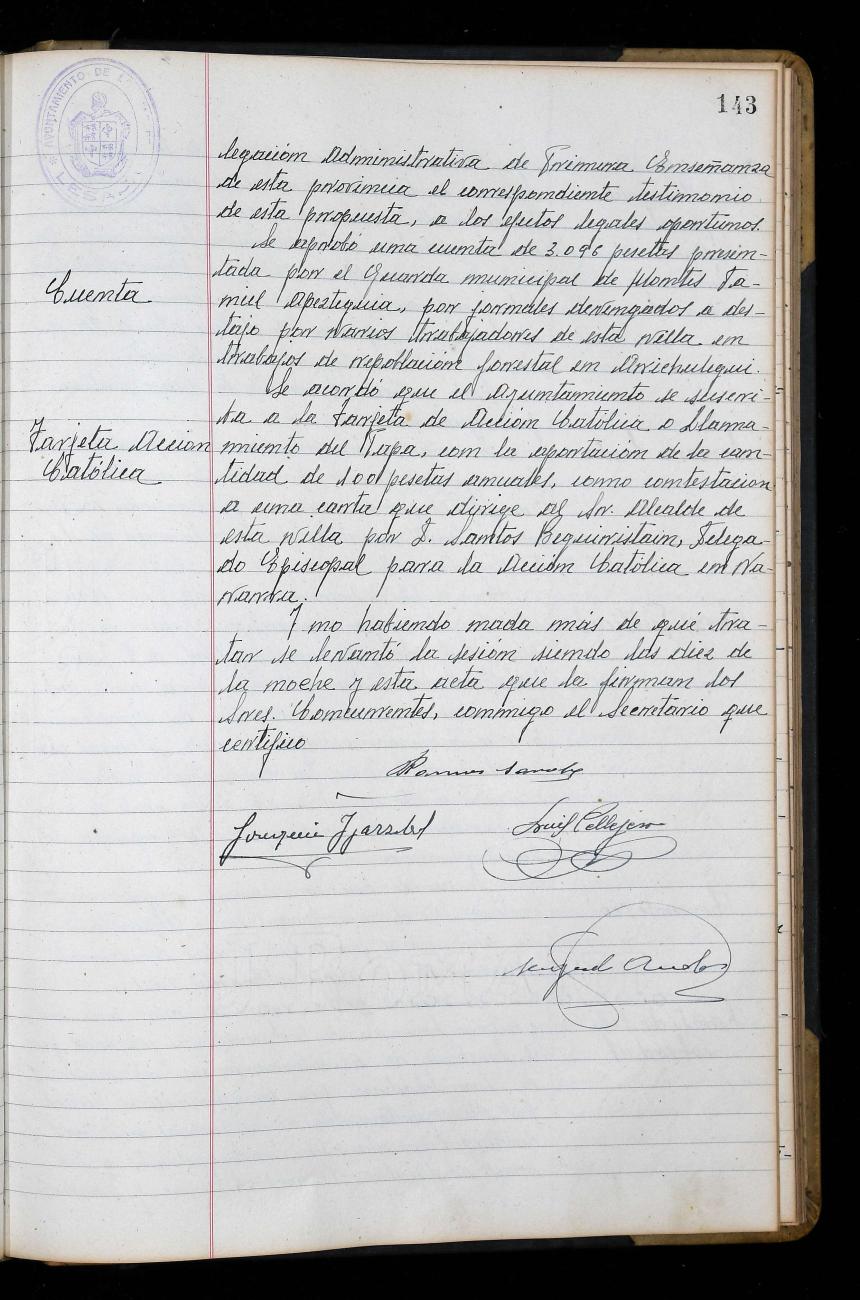 143
AYUNTAMIENTO DE LA
LESACA
legación Administrativa de Primera Enseñanza
de esta provincia el correspondiente testimonio
de esta propuesta, a los efectos legales oportunos.
Se aprobó una cuenta de 3.096 pesetas presen-
Cuenta
tada por el Guarda municipal de Montes Da-
niel Apezteguia, por jornales devengados a des-
tajo por varios trabajadores de esta villa en
trabajos de repoblación forestal en Arichulegui.
Se acordó que el Ayuntamiento se suscri-
Tarjeta Acción
Católica
va a la Tarjeta de Acción Católica o Llama-
miento del Papa, con la aportación de la can-
tidad de 100 pesetas anuales, como contestación
a una carta que dirige al Sr. Alcalde de
esta villa por D. Santos Beguiristain, Delega-
do Episcopal para la Acción Católica en Na-
varra.
Y no habiendo nada más de qué tra-
tar se levantó la sesión siendo las diez de
la noche y esta acta que la firman los
Sres. Concurrentes, conmigo el Secretario que
certifico
Joaquin
Luis Callejero
Miguel